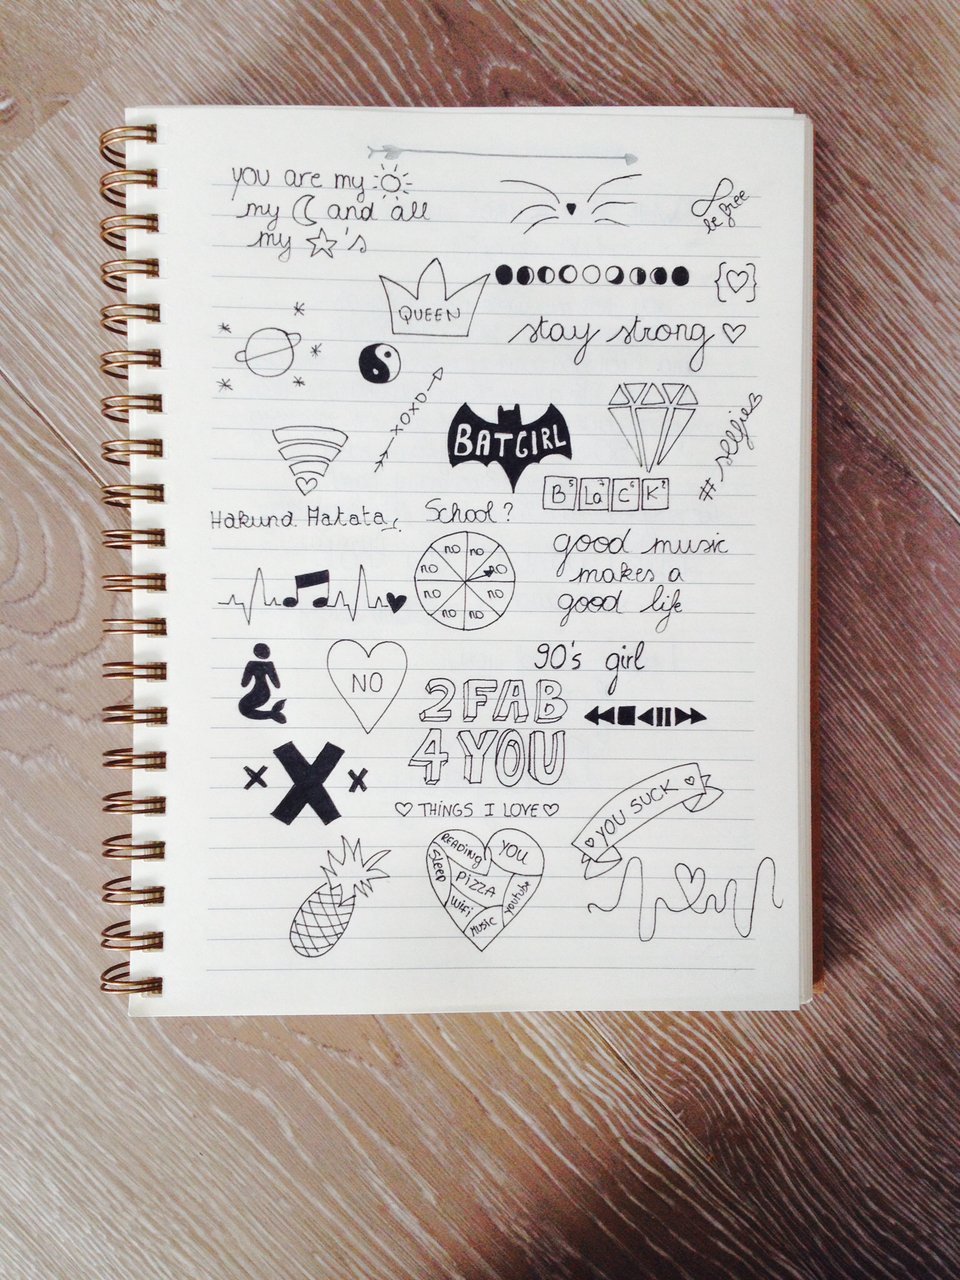 you are my
my and all
my 's
be free
QUEEN
stay strong
XOXO
BATGIRL
# selfie
B L A C K
Hakuna Matata
School?
NO NO
NO NO
NO NO
NO NO
good music
makes a
good life
90's girl
NO
2 FAB
4 YOU
X X X
THINGS I LOVE
YOU SUCK
READING
YOU
SLEEP
PIZZA
WiFi
Youtube
MUSIC